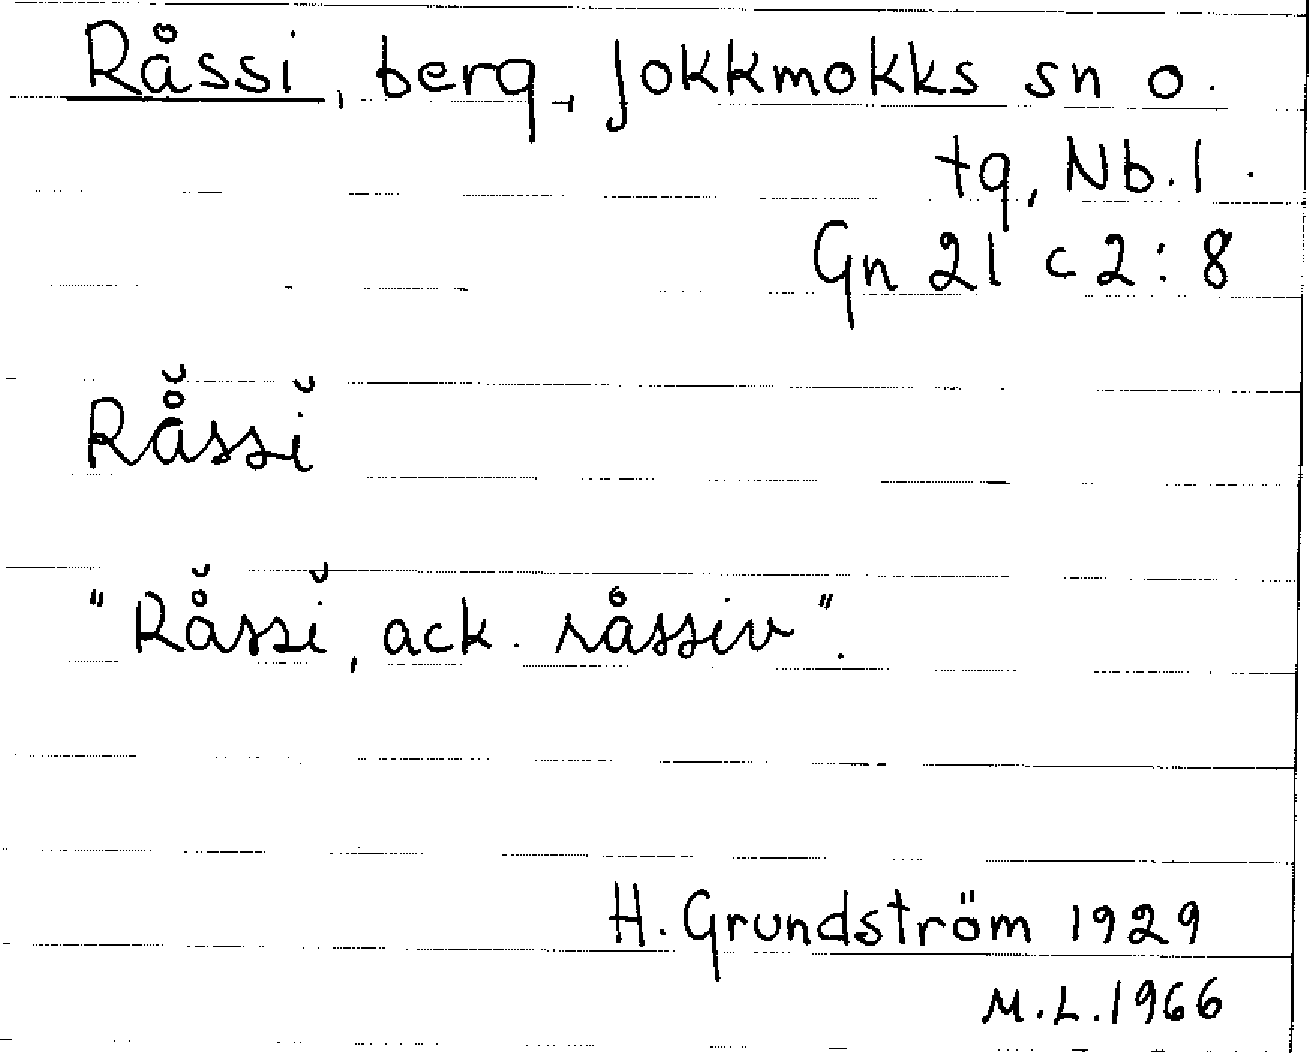 Råssi, berg, Jokkmokks sn o.
tg, Nb. l.
Gn 21 c 2:8
Rå̆ssĭ
"Rå̆ssĭ, ack. råssiv".
H. Grundström 1929
M.L. 1966